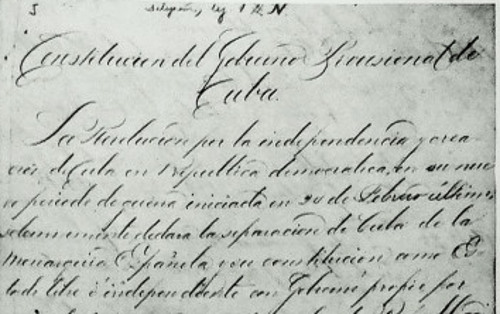 Constitucion del Gobierno Provisional de
Cuba.
La Revolucion por la independencia y crea
cion de Cuba en Republica democratica, en su nue
vo periodo de guerra iniciada en 24 de Febrero último
solemnemente declara la separacion de Cuba de la
Monarquia Española y su constitucion como Es
tado libre é independiente con Gobierno propio por